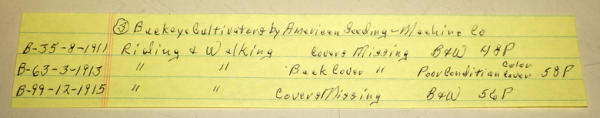 ③ Buckeye Cultivators by American Seeding-Machine Co
B-35-8-1911 Riding & Walking Covers Missing B&W 48P
B-63-3-1913 " " Back Cover " Poor Condition Color Cover 58P
B-99-12-1915 " " Covers Missing B&W 56P